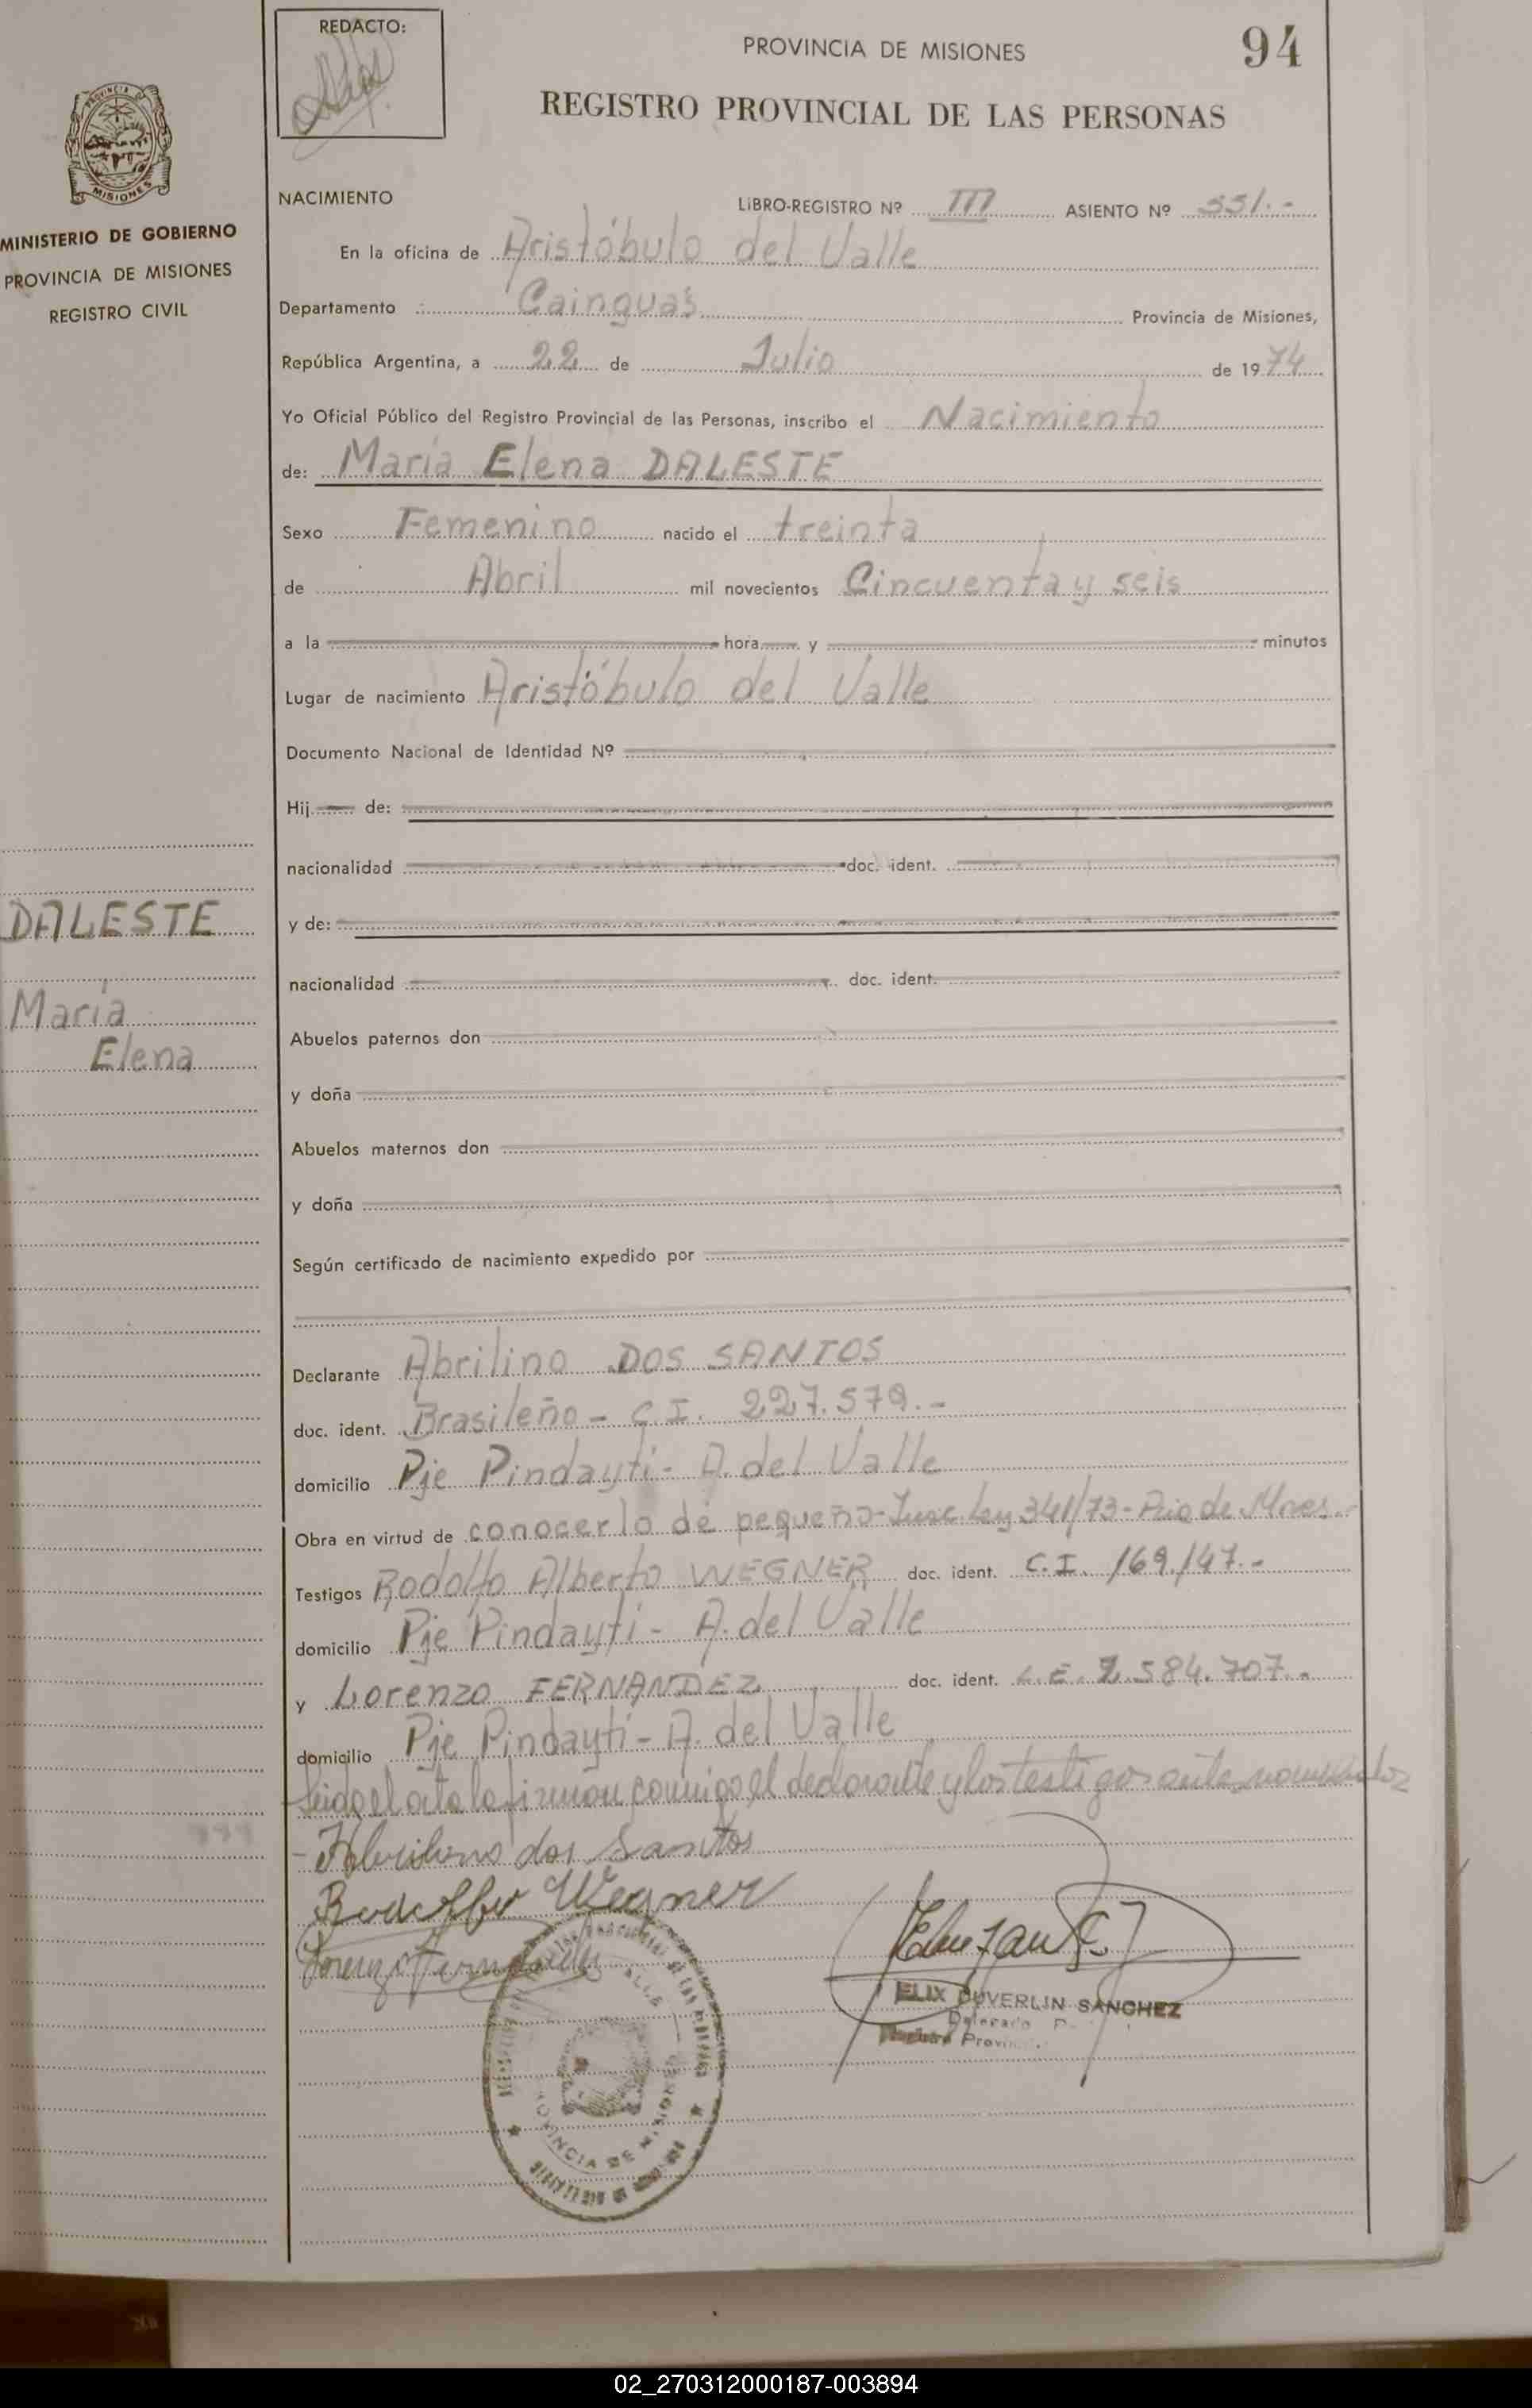 REDACTO:
PROVINCIA DE MISIONES
94
REGISTRO PROVINCIAL DE LAS PERSONAS
PROVINCIA
MISIONES
MINISTERIO DE GOBIERNO
PROVINCIA DE MISIONES
REGISTRO CIVIL
NACIMIENTO LIBRO-REGISTRO Nº III ASIENTO Nº 551.-
En la oficina de Aristóbulo del Valle
Departamento Cainguás Provincia de Misiones,
República Argentina, a 22 de Julio de 1974
Yo Oficial Público del Registro Provincial de las Personas, inscribo el Nacimiento
de: María Elena DALESTE
Sexo Femenino nacido el treinta
de Abril mil novecientos Cincuenta y seis
a la hora y minutos
Lugar de nacimiento Aristóbulo del Valle
Documento Nacional de Identidad Nº
Hij de:
nacionalidad doc. ident.
DALESTE
y de:
nacionalidad doc. ident.
María
Elena
Abuelos paternos don
y doña
Abuelos maternos don
y doña
Según certificado de nacimiento expedido por
Declarante Abrilino DOS SANTOS
doc. ident. Brasileño - C.I. 227.579.-
domicilio Pje Pindayti - A. del Valle
Obra en virtud de conocerlo de pequeño - Ley 341/73 - de
Testigos Rodolfo Alberto WEGNER doc. ident. C.I. 169.147.-
domicilio Pje Pindayti - A. del Valle
y Lorenzo FERNANDEZ doc. ident. L.E. 2.584.707.-
domicilio Pje Pindayti - A. del Valle
Leida el acta la firman conmigo el declarante y los testigos ante nombrados
dos Santos
Rodolfo Wegner
Lorenzo Fernandez
ELIX DUVERLIN SANCHEZ
Delegado
Provin
PROVINCIA DE MISIONES
02_270312000187-003894